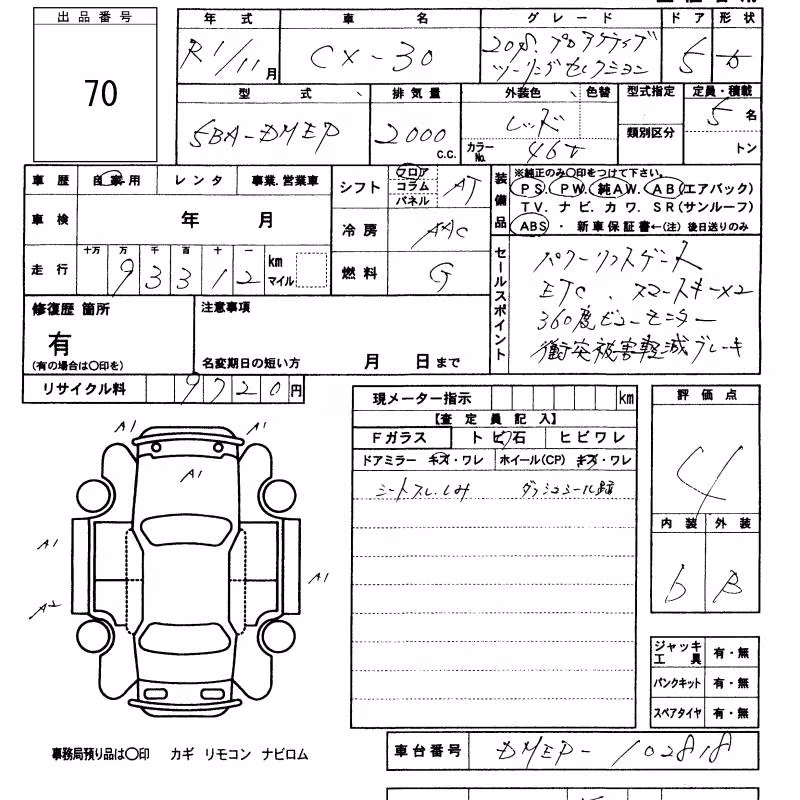 出品番号
70
年式
R1/11月
車名
CX-30
グレード
20S. プロアクティブ
ツーリングセレクション
ドア
5
形状
型式
5BA-DMEP
排気量
2000
C.C.
外装色
レッド
色替
カラーNo.
46V
型式指定
類別区分
定員・積載
5名
トン
車歴
自家用
レンタ
事業.営業車
車検
年 月
走行
十万 万 千 百 十 一
93312
km
マイル
シフト
フロア
コラム
パネル
AT
冷房
AAC
燃料
G
装備品
※純正のみ〇印をつけて下さい。
PS. PW. 純AW. AB(エアバック)
TV. ナビ. カワ. SR(サンルーフ)
ABS ・ 新車保証書←(注) 後日送りのみ
セールスポイント
パワーリフトゲート
ETC、スマートキー×2
360度ビューモニター
衝突被害軽減ブレーキ
修復歴 箇所
有
(有の場合は〇印を)
注意事項
名変期日の短い方 月 日まで
リサイクル料
9720円
現メーター指示
km
【査定員記入】
Fガラス
トビ石
ヒビワレ
ドアミラー キズ・ワレ
ホイール(CP) キズ・ワレ
シートスレ.シミ ダッシュシール跡
評価点
4
内装 外装
b B
A1 A1
A1
A1
A1
A2
ジャッキ工具 有・無
パンクキット 有・無
スペアタイヤ 有・無
事務局預り品は〇印 カギ リモコン ナビロム
車台番号
DMEP-102818